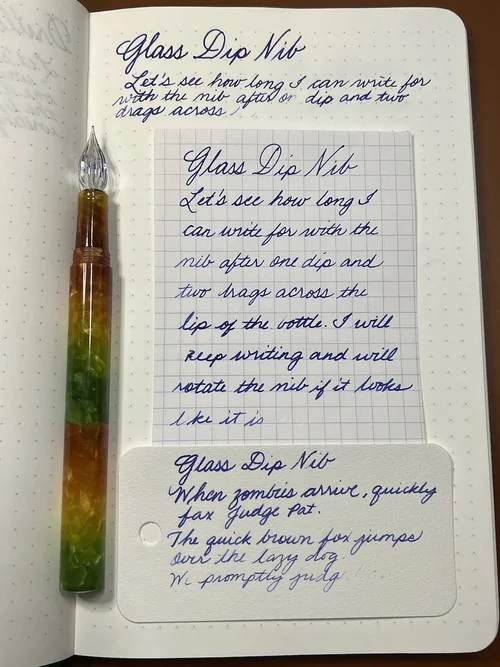 Glass Dip Nib
Let's see how long I can write for
with the nib after or dip and two
drags across
Glass Dip Nib
Let's see how long I
can write for with the
nib after one dip and
two drags across the
lip of the bottle. I will
keep writing and will
rotate the nib if it looks
like it is
Glass Dip Nib
When zombies arrive, quickly
fax Judge Pat.
The quick brown fox jumps
over the lazy dog.
We promptly judg